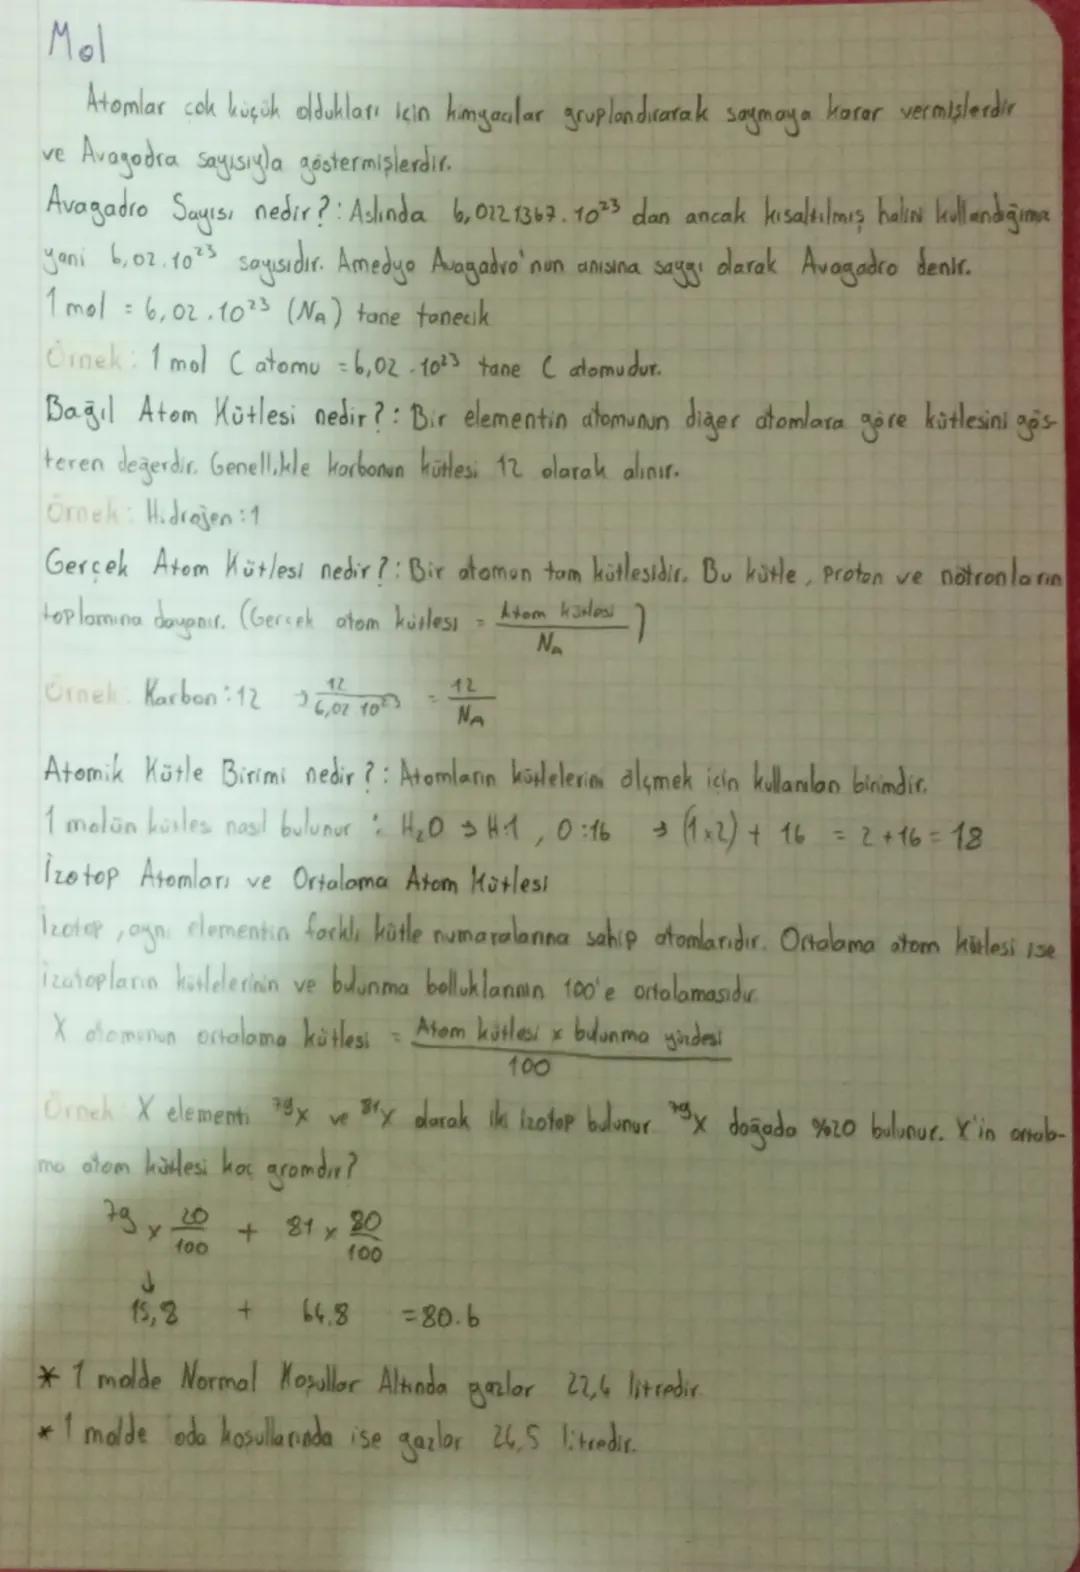 Mol
Atomlar çok küçük oldukları için kimyacılar gruplandırarak saymaya karar vermişlerdir
ve Avagodra sayısıyla göstermişlerdir.
Avagadro Sayısı nedir?: Aslında 6,0221367.10²³ dan ancak kısaltılmış halini kullandığımız
yani 6,02.10²³ sayısıdır. Amedyo Avagadro'nun anısına saygı olarak Avagadro denir.
1 mol = 6,02.10²³ (NA) tane tanecik
Örnek: 1 mol C atomu = 6,02.10²³ tane C atomudur.
Bağıl Atom Kütlesi nedir?: Bir elementin atomunun diğer atomlara göre kütlesini gös-
teren değerdir. Genellikle karbonun kütlesi 12 olarak alınır.
Örnek: Hidrojen:1
Gerçek Atom Kütlesi nedir?: Bir atomun tam kütlesidir. Bu kütle, proton ve nötronların
toplamına dayanır. (Gerçek atom kütlesi = Atom kütlesi / NA)
Örnek: Karbon:12 → 12 / 6,02 10²³ = 12 / NA
Atomik Kütle Birimi nedir?: Atomların kütlelerini ölçmek için kullanılan birimdir.
1 molün kütlesi nasıl bulunur: H₂O → H:1, O:16 → (1x2) + 16 = 2+16 = 18
İzotop Atomları ve Ortalama Atom Kütlesi
İzotop, aynı elementin farklı kütle numaralarına sahip atomlarıdır. Ortalama atom kütlesi ise
izotopların kütlelerinin ve bulunma bolluklarının 100'e ortalamasıdır.
X atomunun ortalama kütlesi = Atom kütlesi x bulunma yüzdesi / 100
Örnek: X elementi ⁷⁹X ve ⁸¹X olarak iki izotop bulunur. ⁷⁹X doğada %20 bulunur. X'in ortala-
ma atom kütlesi kaç gramdır?
79 x 20/100 + 81 x 80/100
↓
15,8 + 64.8 = 80.6
* 1 molde Normal Koşullar Altında gazlar 22,4 litredir.
* 1 molde oda koşullarında ise gazlar 24,5 litredir.